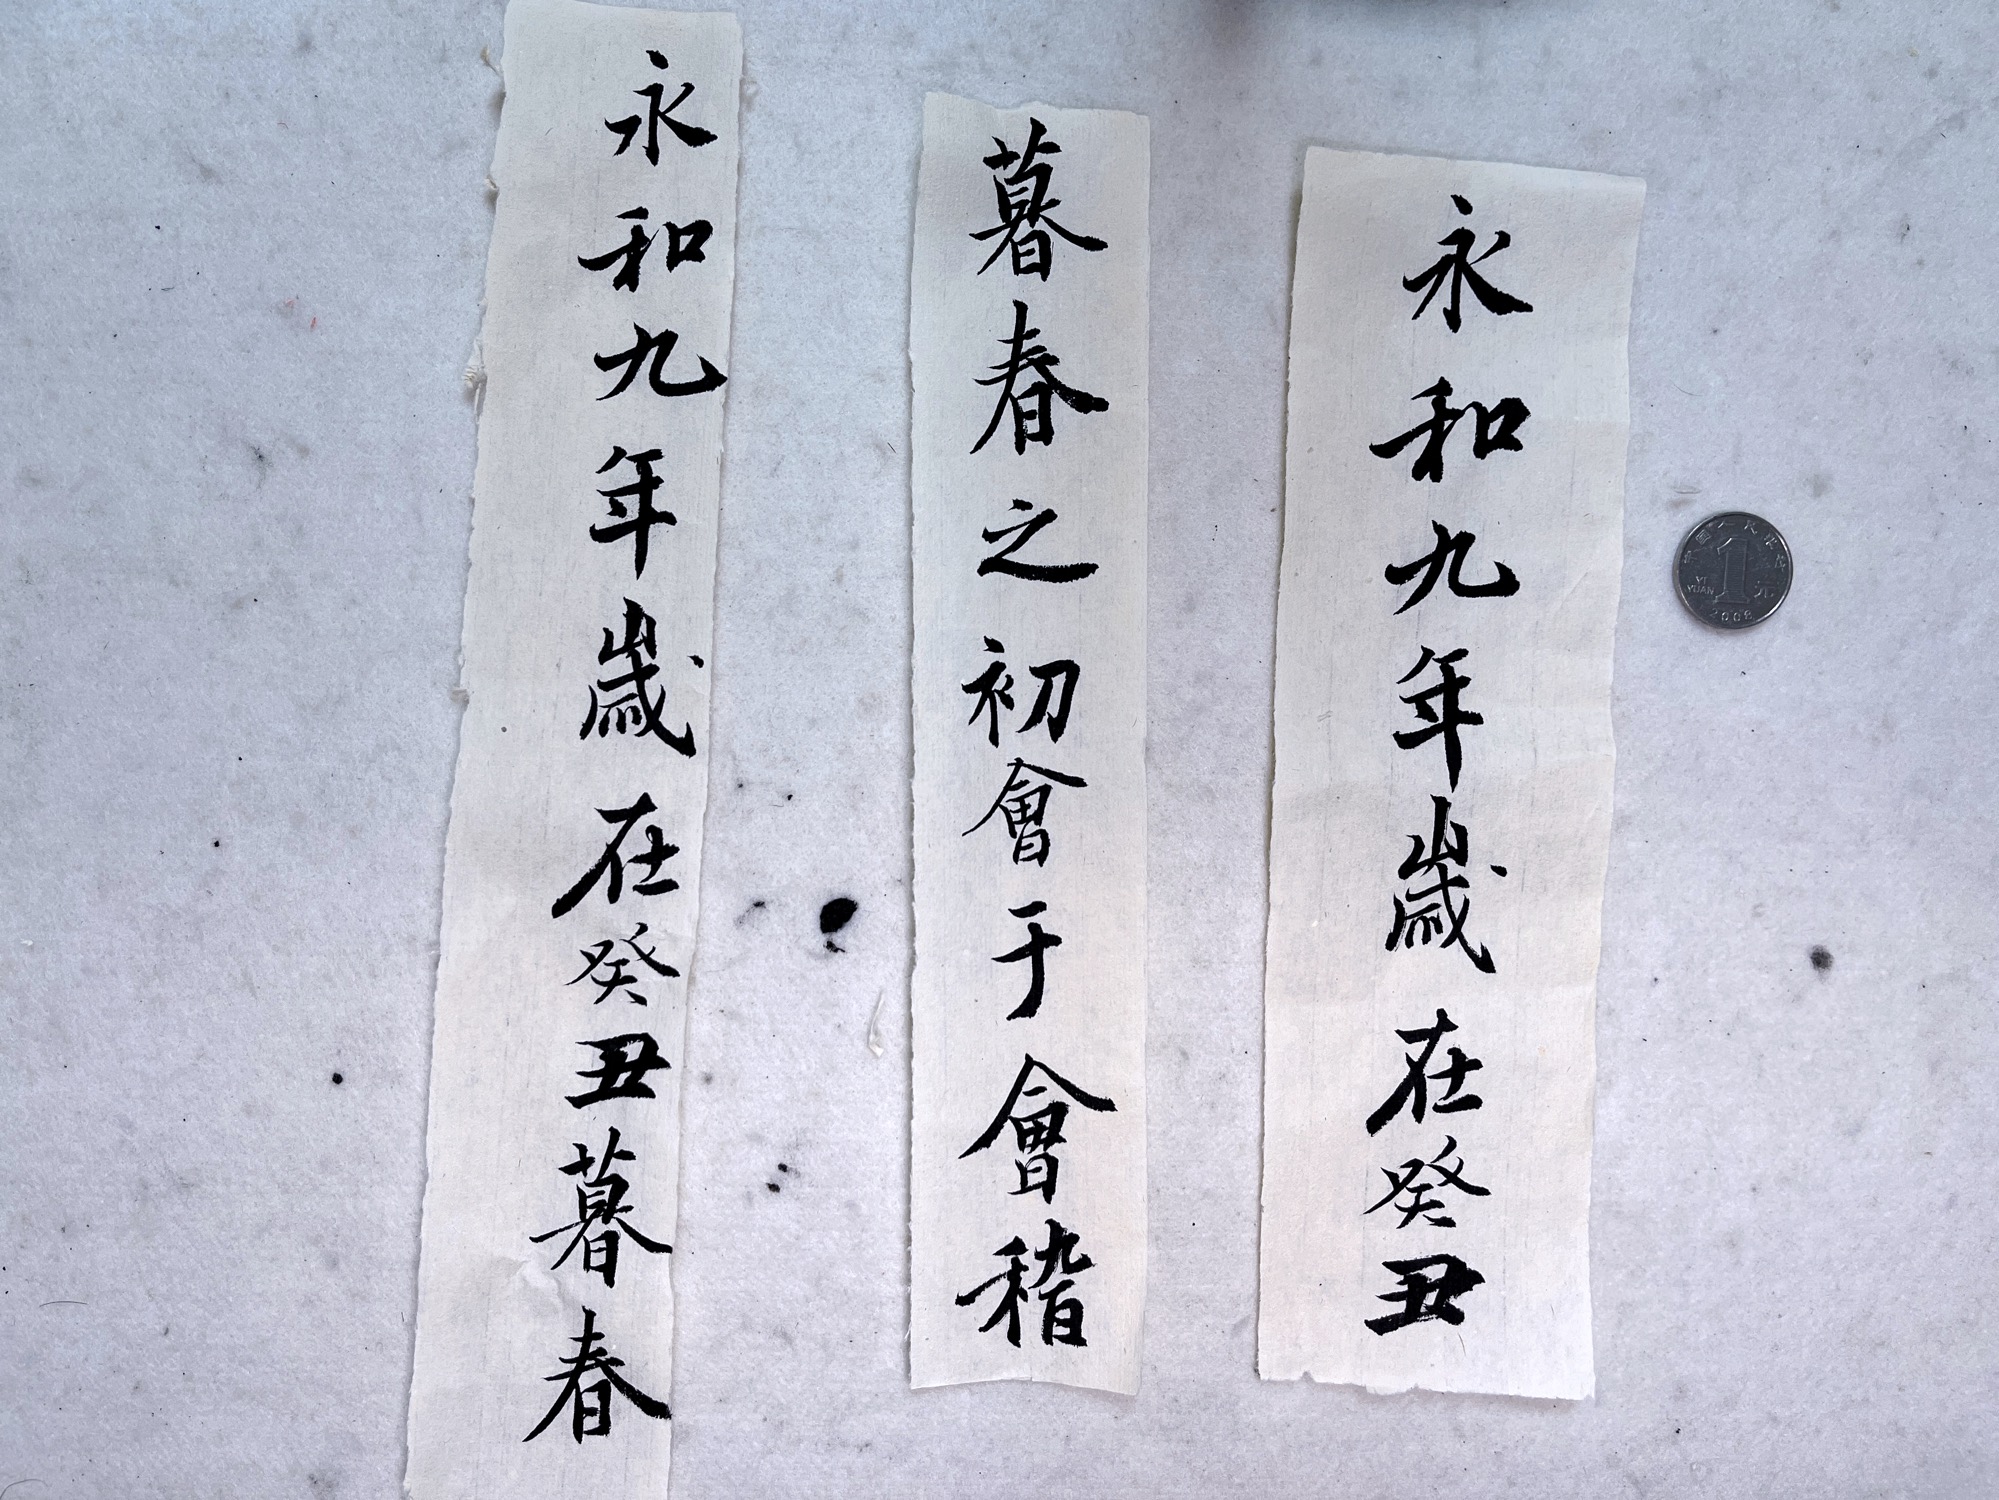 永和九年歲在癸丑
暮春之初會于會稽
永和九年歲在癸丑暮春
中国人民银行
1
元
YI
YUAN
2008